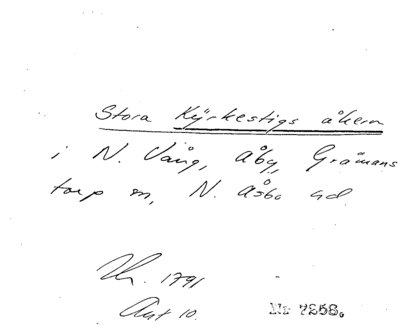 Stora Kÿrkestigs åkern
i N. Vång, Åby, Gråmans
torp sn, N. Åsbo hd.
1791
Akt 10.
Nr 7258.